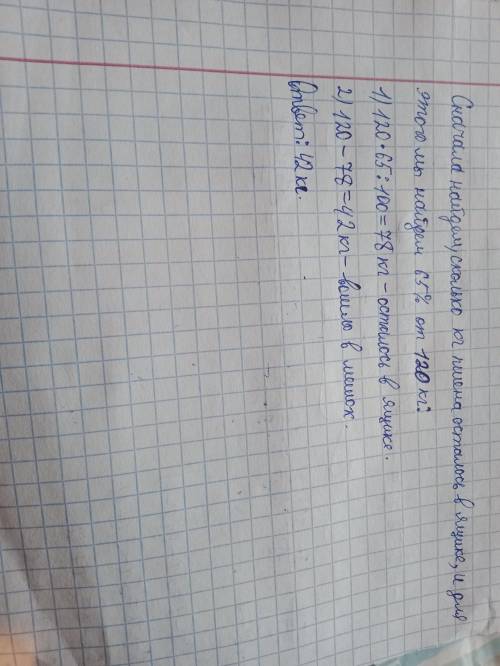 Сначала найдем, сколько кг пшена осталось в ящике, и для
этого мы найдем 65% от 120 кг:
1) 120・65:100=78 кг - осталось в ящике.
2) 120 - 78 = 42 кг - вошло в мешок.
Ответ: 42 кг.